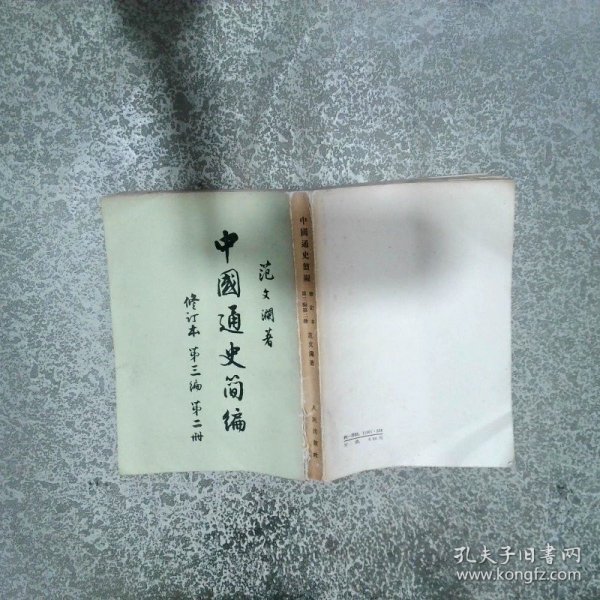 范文瀾著
中國通史简编
修订本 第三编 第二册
中國通史簡編
修訂本
第三編第二冊
范文瀾著
人民出版社
孔夫子旧书网
www.kongfz.com